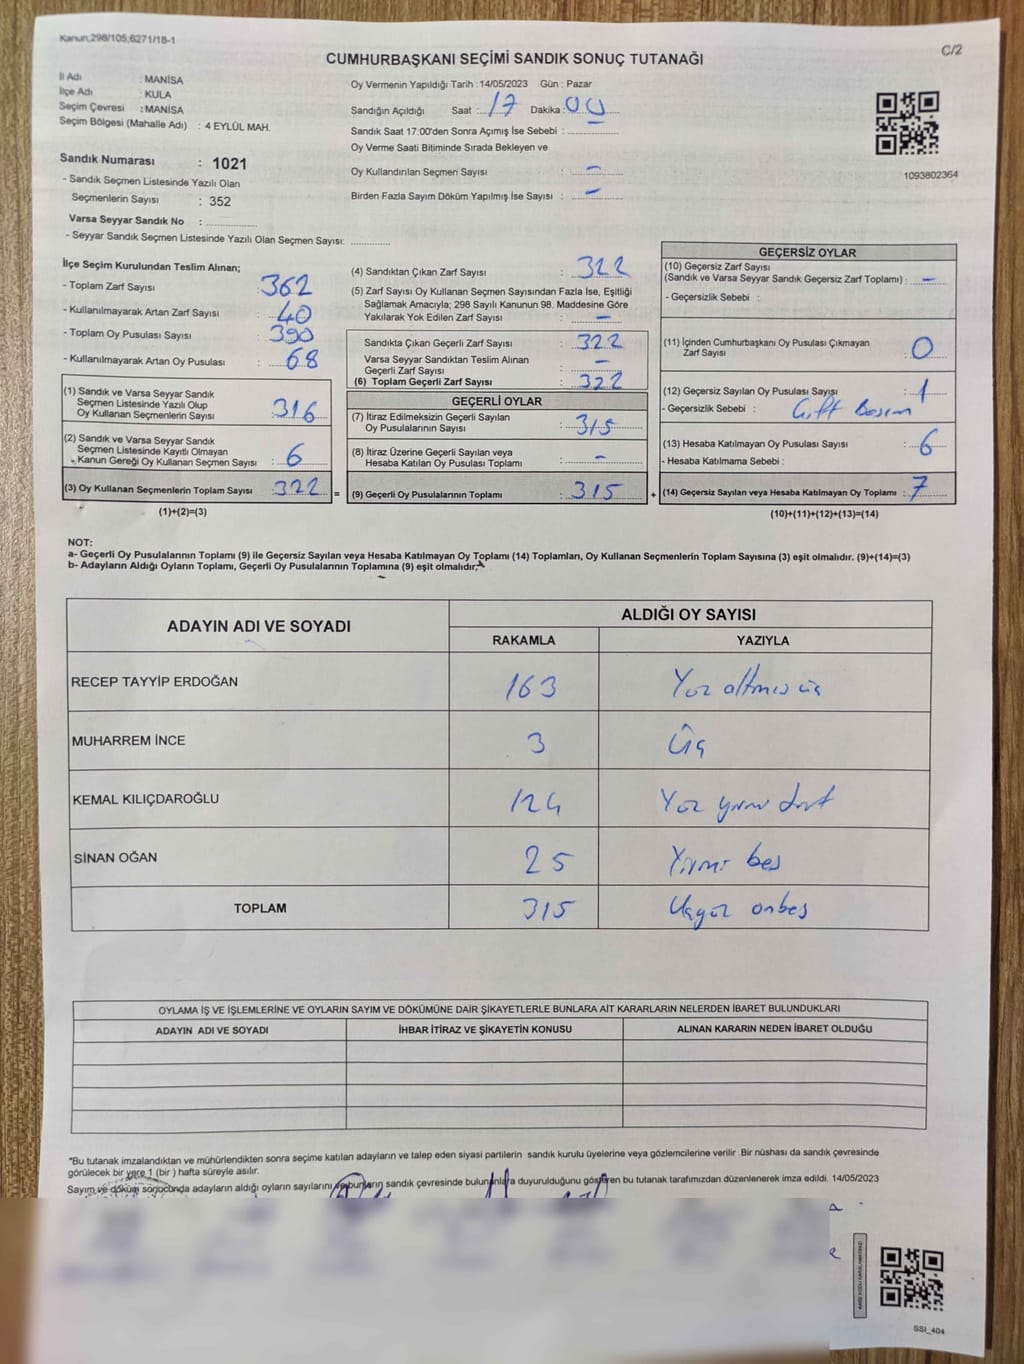 Kanun,298/105,6271/18-1
C/2
CUMHURBAŞKANI SEÇİMİ SANDIK SONUÇ TUTANAĞI
İl Adı : MANİSA
İlçe Adı : KULA
Seçim Çevresi : MANİSA
Seçim Bölgesi (Mahalle Adı) : 4 EYLÜL MAH.
Oy Vermenin Yapıldığı Tarih :14/05/2023 Gün : Pazar
Sandığın Açıldığı Saat : 17 Dakika : 00
Sandık Saat 17:00'den Sonra Açımış İse Sebebi :
Oy Verme Saati Bitiminde Sırada Bekleyen ve
Oy Kullandırılan Seçmen Sayısı : -
Birden Fazla Sayım Döküm Yapılmış İse Sayısı : -
1093802364
Sandık Numarası : 1021
- Sandık Seçmen Listesinde Yazılı Olan
Seçmenlerin Sayısı : 352
Varsa Seyyar Sandık No :
- Seyyar Sandık Seçmen Listesinde Yazılı Olan Seçmen Sayısı:
İlçe Seçim Kurulundan Teslim Alınan;
- Toplam Zarf Sayısı : 362
- Kullanılmayarak Artan Zarf Sayısı : 40
- Toplam Oy Pusulası Sayısı : 390
- Kullanılmayarak Artan Oy Pusulası : 68
(1) Sandık ve Varsa Seyyar Sandık
Seçmen Listesinde Yazılı Olup
Oy Kullanan Seçmenlerin Sayısı : 316
(2) Sandık ve Varsa Seyyar Sandık
Seçmen Listesinde Kayıtlı Olmayan
Kanun Gereği Oy Kullanan Seçmen Sayısı : 6
(3) Oy Kullanan Seçmenlerin Toplam Sayısı : 322 =
(1)+(2)=(3)
(4) Sandıktan Çıkan Zarf Sayısı : 322
(5) Zarf Sayısı Oy Kullanan Seçmen Sayısından Fazla İse, Eşitliği
Sağlamak Amacıyla; 298 Sayılı Kanunun 98. Maddesine Göre
Yakılarak Yok Edilen Zarf Sayısı : -
Sandıkta Çıkan Geçerli Zarf Sayısı : 322
Varsa Seyyar Sandıktan Teslim Alınan
Geçerli Zarf Sayısı : -
(6) Toplam Geçerli Zarf Sayısı : 322
GEÇERLİ OYLAR
(7) İtiraz Edilmeksizin Geçerli Sayılan
Oy Pusulalarının Sayısı : 315
(8) İtiraz Üzerine Geçerli Sayılan veya
Hesaba Katılan Oy Pusulası Toplamı : -
(9) Geçerli Oy Pusulalarının Toplamı : 315 +
GEÇERSİZ OYLAR
(10) Geçersiz Zarf Sayısı
(Sandık ve Varsa Seyyar Sandık Geçersiz Zarf Toplamı) : -
- Geçersizlik Sebebi :
(11) İçinden Cumhurbaşkanı Oy Pusulası Çıkmayan
Zarf Sayısı : 0
(12) Geçersiz Sayılan Oy Pusulası Sayısı : 1
- Geçersizlik Sebebi : Çift Basım
(13) Hesaba Katılmayan Oy Pusulası Sayısı : 6
- Hesaba Katılmama Sebebi :
(14) Geçersiz Sayılan veya Hesaba Katılmayan Oy Toplamı : 7
(10)+(11)+(12)+(13)=(14)
NOT:
a- Geçerli Oy Pusulalarının Toplamı (9) ile Geçersiz Sayılan veya Hesaba Katılmayan Oy Toplamı (14) Toplamları, Oy Kullanan Seçmenlerin Toplam Sayısına (3) eşit olmalıdır. (9)+(14)=(3)
b- Adayların Aldığı Oyların Toplamı, Geçerli Oy Pusulalarının Toplamına (9) eşit olmalıdır.
ADAYIN ADI VE SOYADI ALDIĞI OY SAYISI
RAKAMLA YAZIYLA
RECEP TAYYİP ERDOĞAN 163 Yüz altmış üç
MUHARREM İNCE 3 Üç
KEMAL KILIÇDAROĞLU 124 Yüz yirmi dört
SİNAN OĞAN 25 Yirmi beş
TOPLAM 315 Üçyüz onbeş
OYLAMA İŞ VE İŞLEMLERİNE VE OYLARIN SAYIM VE DÖKÜMÜNE DAİR ŞİKAYETLERLE BUNLARA AİT KARARLARIN NELERDEN İBARET BULUNDUKLARI
ADAYIN ADI VE SOYADI İHBAR İTİRAZ VE ŞİKAYETİN KONUSU ALINAN KARARIN NEDEN İBARET OLDUĞU
*Bu tutanak imzalandıktan ve mühürlendikten sonra seçime katılan adayların ve talep eden siyasi partilerin sandık kurulu üyelerine veya gözlemcilerine verilir .Bir nüshası da sandık çevresinde
görülecek bir yere 1 (bir ) hafta süreyle asılır.
Sayım ve döküm sonucunda adayların aldığı oyların sayılarını ve bunların sandık çevresinde bulunanlara duyurulduğunu gösteren bu tutanak tarafımızdan düzenlenerek imza edildi. 14/05/2023
SSI_404